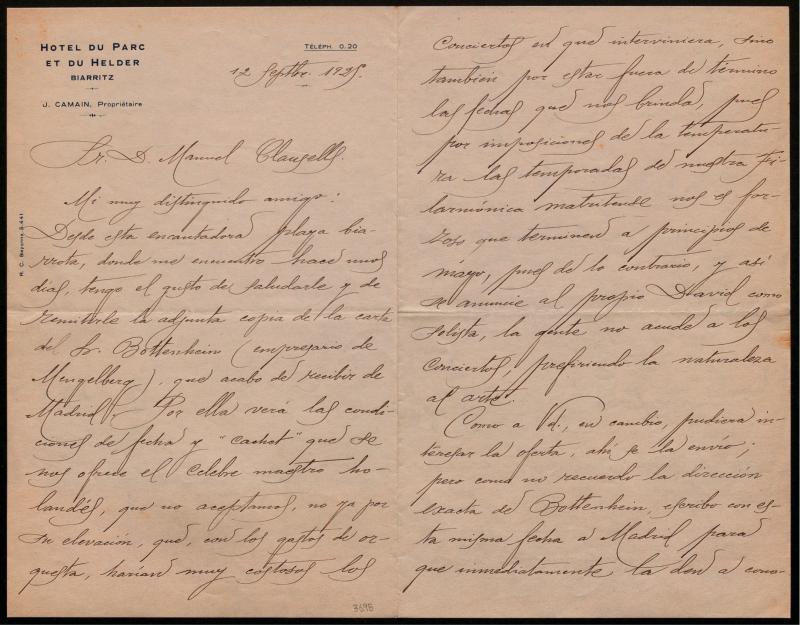 HOTEL DU PARC
ET DU HELDER
BIARRITZ
J. CAMAIN, Propriétaire
TÉLÉPH. 0.20
12 Septbre. 1925.
R. C. Bayonne B.441
Sr. D. Manuel Clausells.
Mi muy distinguido amigo:
Desde esta encantadora playa bia-
rrota, donde me encuentro hace unos
dias, tengo el gusto de saludarle y de
remitirle la adjunta copia de la carta
del Sr. Bottenhein (empresario de
Mengelberg), que acabo de recibir de
Madrid. Por ella verá las condi-
ciones de fecha y "cachet" que se
nos ofrece el célebre maestro ho-
landés, que no aceptamos, no ya por
su elevación, que, con los gastos de or-
questa, harian muy costosos los
3698
conciertos en que interviniera, sino
también por estar fuera de término
las fechas que nos brinda, pues
por imposiciones de la temperatu-
ra las temporadas de nuestra Fi-
larmónica matritense nos es for-
zoso que terminen a principios de
mayo, pues de lo contrario, y asi
se anuncie al propio David como
solista, la gente no acude a los
conciertos, prefiriendo la naturaleza
al arte.
Como a Vd., en cambio, pudiera in-
teresar la oferta, ahi se la envio;
pero como no recuerdo la dirección
exacta de Bottenhein, escribo con es-
ta misma fecha a Madrid para
que inmediatamente la den a cono-